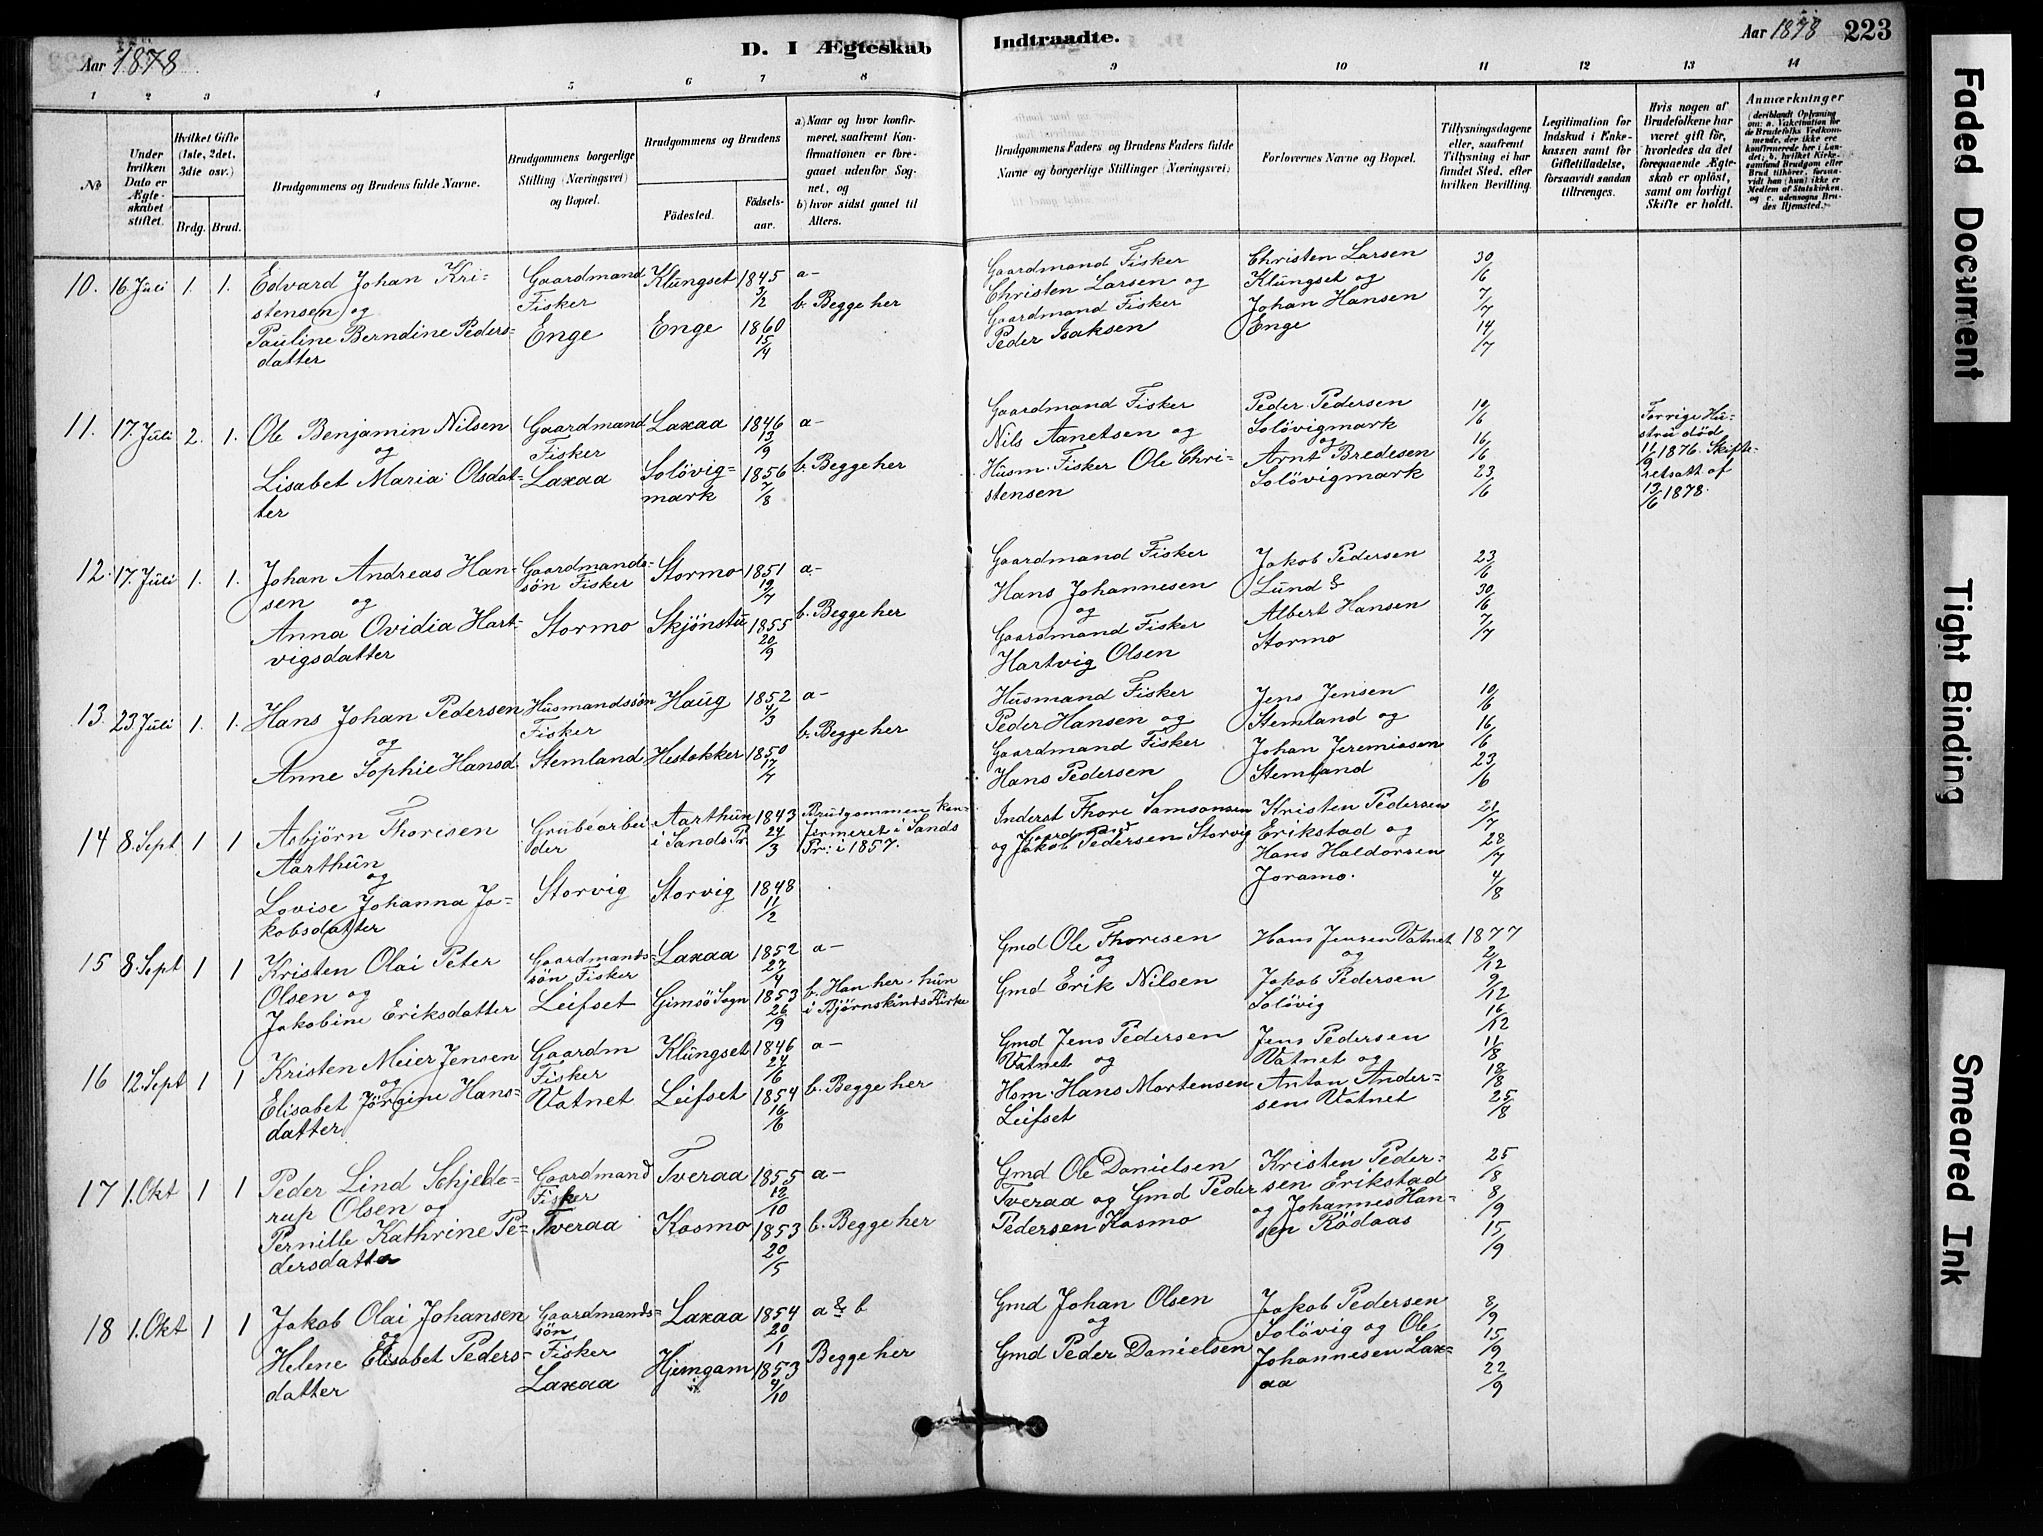 Aar 1878
D. I Ægteskab
Indtraadte.
Aar 1878
223
1 2 3 4 5 6 7 8 9 10 11 12 13 14
No
Under hvilken Dato er Ægteskabet stiftet.
Hvilket Gifte (1ste, 2det, 3die osv.)
Brdg. Brud.
Brudgommens og Brudens fulde Navne.
Brudgommens borgerlige Stilling (Næringsvei) og Bopæl.
Brudgommens og Brudens
Födested.
Födsels-aar.
a) Naar og hvor konfirmeret, saafremt Konfirmationen er foregaaet udenfor Sognet, og
b) hvor sidst gaaet til Alters.
Brudgommens Faders og Brudens Faders fulde Navne og borgerlige Stillinger (Næringsvei)
Forlovernes Navne og Bopæl.
Tillysningsdagene eller, saafremt Tillysning ei har fundet Sted, efter hvilken Bevilling.
Legitimation for Indskud i Enkekassen samt for Giftetilladelse, forsaavidt saadan tiltrænges.
Hvis nogen af Brudefolkene har været gift för, hvorledes da det foregaaende Ægteskab er oplöst, samt om lovligt Skifte er holdt.
Anmærkninger
(deriblandt Oplysning om: a. Vakcination for de Brudefolks Vedkommende, der ikke ere konfirmerede her i Landet; b. hvilket Kirkesamfund Brudgom eller Brud tilhörer, forsaavidt han (hun) ikke er Medlem af Statskirken, og c. udensogns Brudes Hjemsted.)
10. 16 Juli 1. 1. Edvard Johan Kri-
stensen og
Pauline Berndine Peders-
datter
Gaardmand
Fisker
Enge
Klungset 1845
3/2
Enge 1860
15/4
a-
b. Begge her
Gaardmand Fisker
Christen Larsen og
Gaardmand Fisker
Peder Isaksen
Christen Larsen
Klungset og
Johan Hansen
Enge
30/6
7/7
14/7
11. 17. Juli 2. 1. Ole Benjamin Nilsen
og
Lisabet Maria Olsdat-
ter
Gaardmand
Fisker
Laxaa
Laxaa 1846
13/9
Solövig- 1856
mark 7/8
a-
b. Begge her
Gaardmand Fisker
Nils Aanetsen og
Husm. Fisker Ole Chri-
stensen
Peder Pedersen
Solövigmark
og
Arnt Bredesen
Solövigmark
10/6
16/6
23/6
Forrige Hu-
stru död
11/9 1876. Skifte-
retsatt. af
13/6 1878.
12. 17. Juli 1. 1. Johan Andreas Han-
sen og
Anna Ovidia Hart-
vigsdatter
Gaardmands-
sön Fisker
Stormo
Stormo 1851
19/7
Skjönstu 1855
20/9
a-
b. Begge her
Gaardmand Fisker
Hans Johannesen
og
Gaardmand Fisker
Hartvig Olsen
Jakob Pedersen
Lund &
Albert Hansen
Stormo
23/6
30/6
7/7
13. 23. Juli 1. 1. Hans Johan Pedersen
og
Anne Sophie Hansd.
Husmandssön
Fisker
Stemland
Haug 1852
4/3
Hestokker 1850
17/7
a-
b. Begge her
Husmand Fisker
Peder Hansen og
Gaardmand Fisker
Hans Pedersen
Jens Jensen
Stemland og
Johan Jeremiasen
Stemland
10/6
16/6
23/6
14 8. Sept 1 1 Asbjörn Thorisen
Aarthun
og
Lovise Johanna Ja-
kobsdatter
Grubearbei
der
Storvig
Aarthun 1843
i Sands Pr. 24/3
Storvig 1848
11/2
Brudgommen kon-
firmeret i Sands
Pr: i 1857.
Inderst Thore Samsonsen
og Gaardmand Jakob Pedersen Storvig
Kristen Pedersen
Erikstad og
Hans Haldorsen
Joramo.
21/7
28/7
4/8
15 8. Sept 1 1 Kristen Olai Peter
Olsen og
Jakobine Eriksdatter
Gaardmands-
sön Fisker
Leifset
Laxaa 1852
27/4
Gimsö Sogn 1853
26/9
a-
b. Han her, hun
i Björnskinds Kirke
Gmd Ole Thoresen
og
Gmd Erik Nilsen
Hans Jensen Vatnet
og
Jakob Pedersen
Solövig
1877
2/12
9/12
16/12
16 12. Sept 1 1 Kristen Meier Jensen
og
Elisabet Jörgine Hans-
datter
Gaardm
Fisker
Vatnet
Klungset 1846
24/6
Leifset 1854
16/6
a-
b. Begge her
Gmd Jens Pedersen
Vatnet og
Hsm. Hans Mortensen
Leifset
Jens Pedersen
Vatnet og
Anton Ander-
sen Vatnet
11/8
18/8
25/8
17 1. Okt 1 1 Peder Lind Schjelde-
rup Olsen og
Pernille Kathrine Pe-
dersdatter
Gaardmand
Fisker
Tveraa
Tveraa 1855
12/10
Kosmo 1853
20/5
a-
b. Begge her
Gmd Ole Danielsen
Tveraa og Gmd Peder
Pedersen Kosmo
Kristen Peder-
sen Erikstad
og Johannes Han-
sen Rödaas
25/8
8/9
15/9
18 1. Okt 1 1 Jakob Olai Johansen
og
Helene Elisabet Peders-
datter
Gaardmands-
sön
Fisker
Laxaa
Laxaa 1854
20/1
Hjemgam 1853
4/10
a & b
Begge her
Gmd Johan Olsen
og
Gmd Peder Danielsen
Jakob Pedersen
Solövig og Ole
Johannesen Lax-
aa
8/9
15/9
22/9
Faded Document
Tight Binding
Smeared Ink